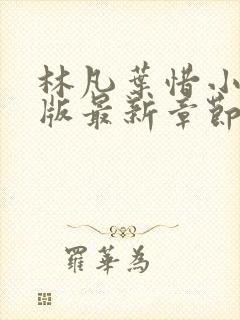 林凡葉惜小
版最新章節
羅華為